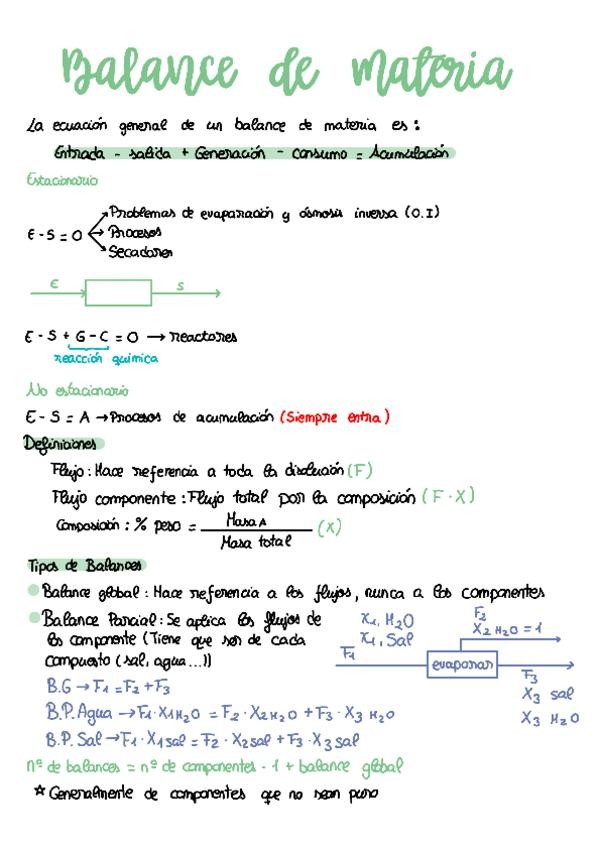 Balance de materia
La ecuación general de un balance de materia es:
Entrada - salida + Generación - consumo = Acumulación
Estacionario
E - S = 0
Problemas de evaporación y ósmosis inversa (O.I)
Procesos
Secadores
E S
E - S + G - C = 0 → reactores
reacción química
No estacionario
E - S = A → Procesos de acumulación (Siempre entra)
Definiciones
Flujo: Hace referencia a toda la disolución (F)
Flujo componente: Flujo total por la composición (F · X)
Composición: % peso = Masa A / Masa total (X)
Tipos de Balances
Balance global: Hace referencia a los flujos, nunca a los componentes
Balance Parcial: Se aplica los flujos de
los componente (Tiene que ser de cada
compuesto (sal, agua...))
X1, H2O
X1, Sal
F1
evaporar
F2
X2 H2O = 1
F3
X3 sal
X3 H2O
B.G → F1 = F2 + F3
B.P. Agua → F1 · X1 H2O = F2 · X2 H2O + F3 · X3 H2O
B.P. Sal → F1 · X1 sal = F2 · X2 sal + F3 · X3 sal
nº de balances = nº de componentes - 1 + balance global
☆ Generalmente de componentes que no sean puro